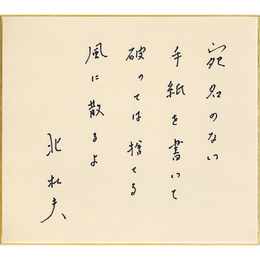 宛名のない
手紙を書いて
破っては捨てる
風に散るよ
北杜夫